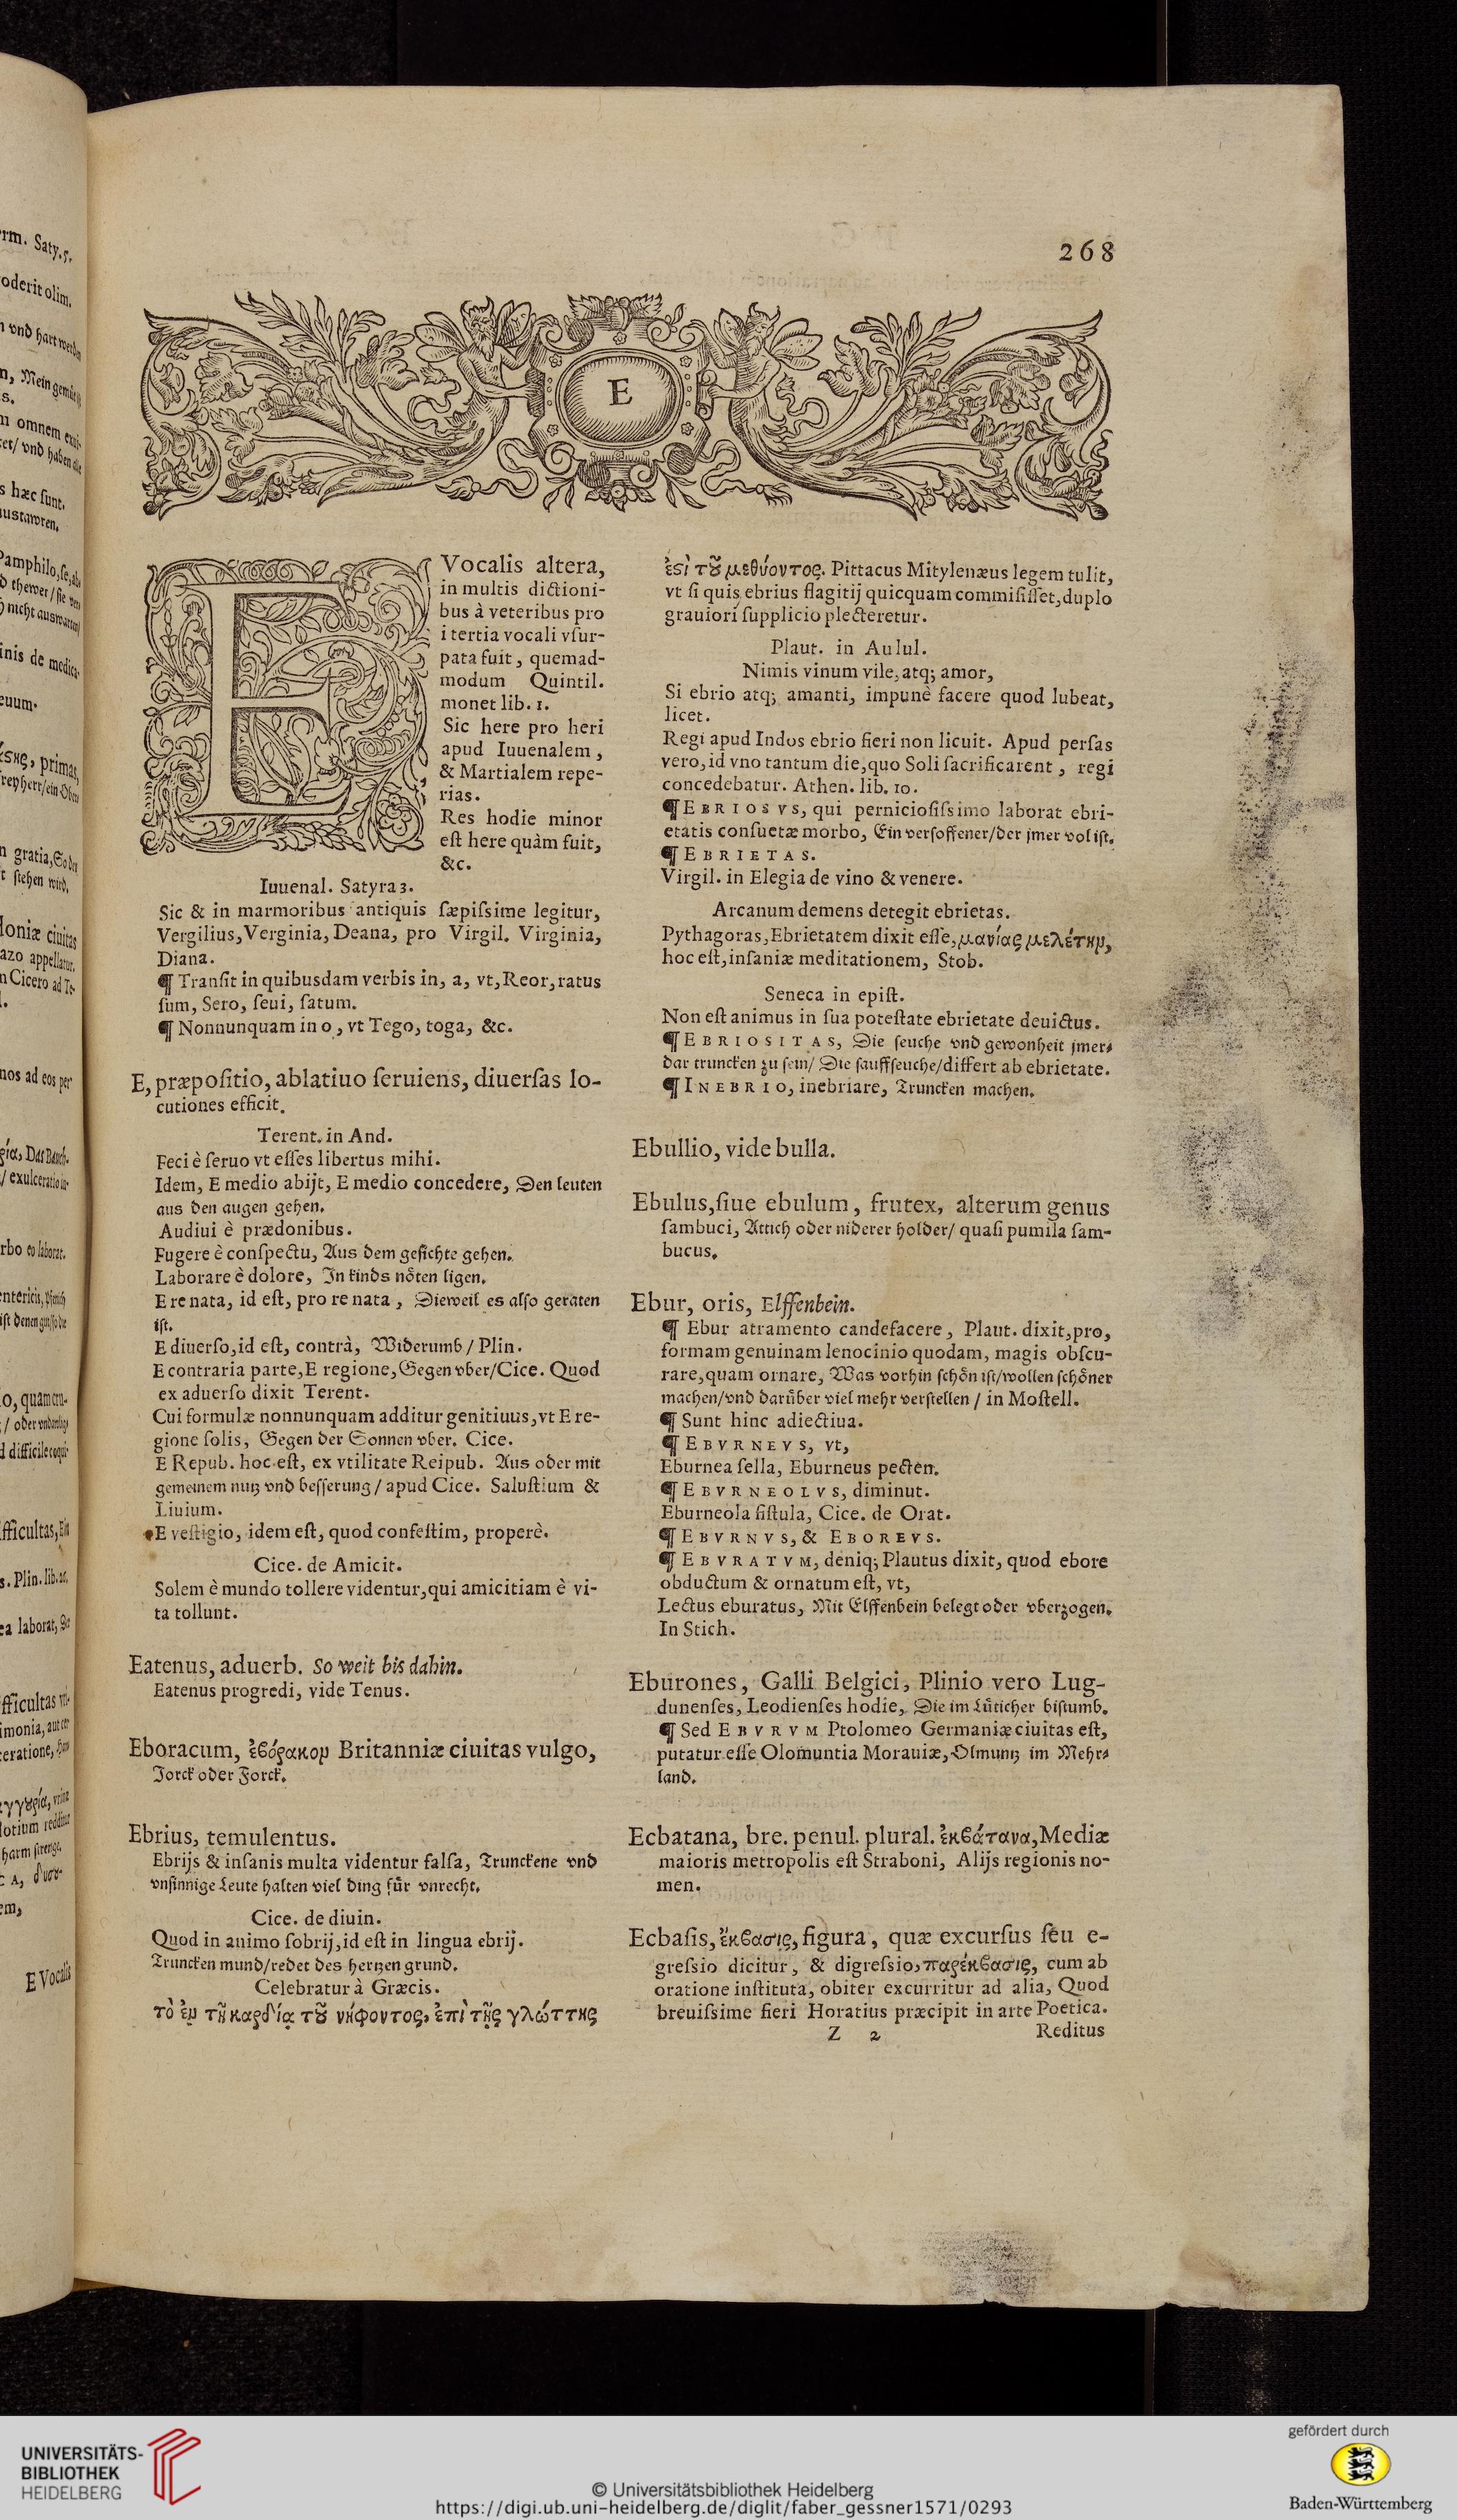 268
E
E Vocalis altera,
in multis dictioni-
bus à veteribus pro
i tertia vocali vſur-
pata fuit, quemad-
modum Quintil.
monet lib. 1.
Sic here pro heri
apud Iuuenalem,
& Martialem repe-
rias.
Res hodie minor
eſt here quàm fuit,
&c.
Iuuenal. Satyra 3.
Sic & in marmoribus antiquis ſæpiſsime legitur,
Vergilius, Verginia, Deana, pro Virgil. Virginia,
Diana.
¶ Tranſit in quibusdam verbis in, a, vt, Reor, ratus
ſum, Sero, ſeui, ſatum.
¶ Nonnunquam in o, vt Tego, toga, &c.
E, præpoſitio, ablatiuo ſeruiens, diuerſas lo-
cutiones efficit.
Terent. in And.
Feci è ſeruo vt eſſes libertus mihi.
Idem, E medio abijt, E medio concedere, Den leuten
aus den augen gehen.
Audiui è prædonibus.
Fugere è conſpectu, Aus dem geſichte gehen.
Laborare è dolore, In kinds nöten ligen.
E re nata, id eſt, pro re nata, Dieweil es alſo geraten
iſt.
E diuerſo, id eſt, contrà, Widerumb / Plin.
E contraria parte, E regione, Gegen vber/ Cice. Quod
ex aduerſo dixit Terent.
Cui formulæ nonnunquam additur genitiuus, vt E re-
gione ſolis, Gegen der Sonnen vber. Cice.
E Repub. hoc eſt, ex vtilitate Reipub. Aus oder mit
gemeinem nutz vnd beſſerung / apud Cice. Saluſtium &
Liuium.
E veſtigio, idem eſt, quod confeſtim, properè.
Cice. de Amicit.
Solem è mundo tollere videntur, qui amicitiam è vi-
ta tollunt.
Eatenus, aduerb. So weit bis dahin.
Eatenus progredi, vide Tenus.
Eboracum, ἐβόρακον Britanniæ ciuitas vulgo,
Jorck oder Forck.
Ebrius, temulentus.
Ebrijs & inſanis multa videntur falſa, Trunckene vnd
vnſinnige Leute halten viel ding für vnrecht.
Cice. de diuin.
Quod in animo ſobrij, id eſt in lingua ebrij.
Truncken mund/redet des hertzen grund.
Celebratur à Græcis.
τὸ ἐν τῇ καρδίᾳ τοῦ νήφοντος, ἐπὶ τῆς γλώττης
ἐστὶ τοῦ μεθύοντος. Pittacus Mitylenæus legem tulit,
vt ſi quis ebrius flagitij quicquam commiſiſſet, duplo
grauiori ſupplicio plecteretur.
Plaut. in Aulul.
Nimis vinum vile, atq; amor,
Si ebrio atq; amanti, impunè facere quod lubeat,
licet.
Regi apud Indos ebrio fieri non licuit. Apud perſas
vero, id vno tantum die, quo Soli ſacrificarent, regi
concedebatur. Athen. lib. 10.
¶ EBRIOSVS, qui pernicioſiſsimo laborat ebri-
etatis conſuetæ morbo, Ein verſoffener/der jmer vol iſt.
¶ EBRIETAS.
Virgil. in Elegia de vino & venere.
Arcanum demens detegit ebrietas.
Pythagoras, Ebrietatem dixit eſſe, μανίας μελέτην,
hoc eſt, inſaniæ meditationem, Stob.
Seneca in epiſt.
Non eſt animus in ſua poteſtate ebrietate deuictus.
¶ EBRIOSITAS, Die ſeuche vnd gewonheit jmer-
dar truncken zu ſein/ Die ſauffſeuche/differt ab ebrietate.
¶ INEBRIO, inebriare, Truncken machen.
Ebullio, vide bulla.
Ebulus, ſiue ebulum, frutex, alterum genus
ſambuci, Attich oder niderer holder/ quaſi pumila ſam-
bucus.
Ebur, oris, Elffenbein.
¶ Ebur atramento candefacere, Plaut. dixit, pro,
formam genuinam lenocinio quodam, magis obſcu-
rare, quam ornare, Was vorhin ſchön iſt/wollen ſchöner
machen/vnd darüber viel mehr verſtellen / in Moſtell.
¶ Sunt hinc adiectiua.
¶ EBVRNEVS, vt,
Eburnea ſella, Eburneus pecten.
¶ EBVRNEOLVS, diminut.
Eburneola fiſtula, Cice. de Orat.
¶ EBVRNVS, & EBOREVS.
¶ EBVRATVM, deniq; Plautus dixit, quod ebore
obductum & ornatum eſt, vt,
Lectus eburatus, Mit Elffenbein belegt oder vberzogen.
In Stich.
Eburones, Galli Belgici, Plinio vero Lug-
dunenſes, Leodienſes hodie, Die im Lüticher biſtumb.
¶ Sed EBVRVM Ptolomeo Germaniæ ciuitas eſt,
putatur eſſe Olomuntia Morauiæ, Olmuntz im Mehr-
land.
Ecbatana, bre. penul. plural. ἐκβάτανα, Mediæ
maioris metropolis eſt Straboni, Alijs regionis no-
men.
Ecbaſis, ἔκβασις, figura, quæ excurſus ſeu e-
greſsio dicitur, & digreſsio, παρέκβασις, cum ab
oratione inſtituta, obiter excurritur ad alia, Quod
breuiſsime fieri Horatius præcipit in arte Poetica.
Z 2 Reditus
UNIVERSITÄTS-
BIBLIOTHEK
HEIDELBERG
© Universitätsbibliothek Heidelberg
https://digi.ub.uni-heidelberg.de/diglit/faber_gessner1571/0293
gefördert durch
Baden-Württemberg